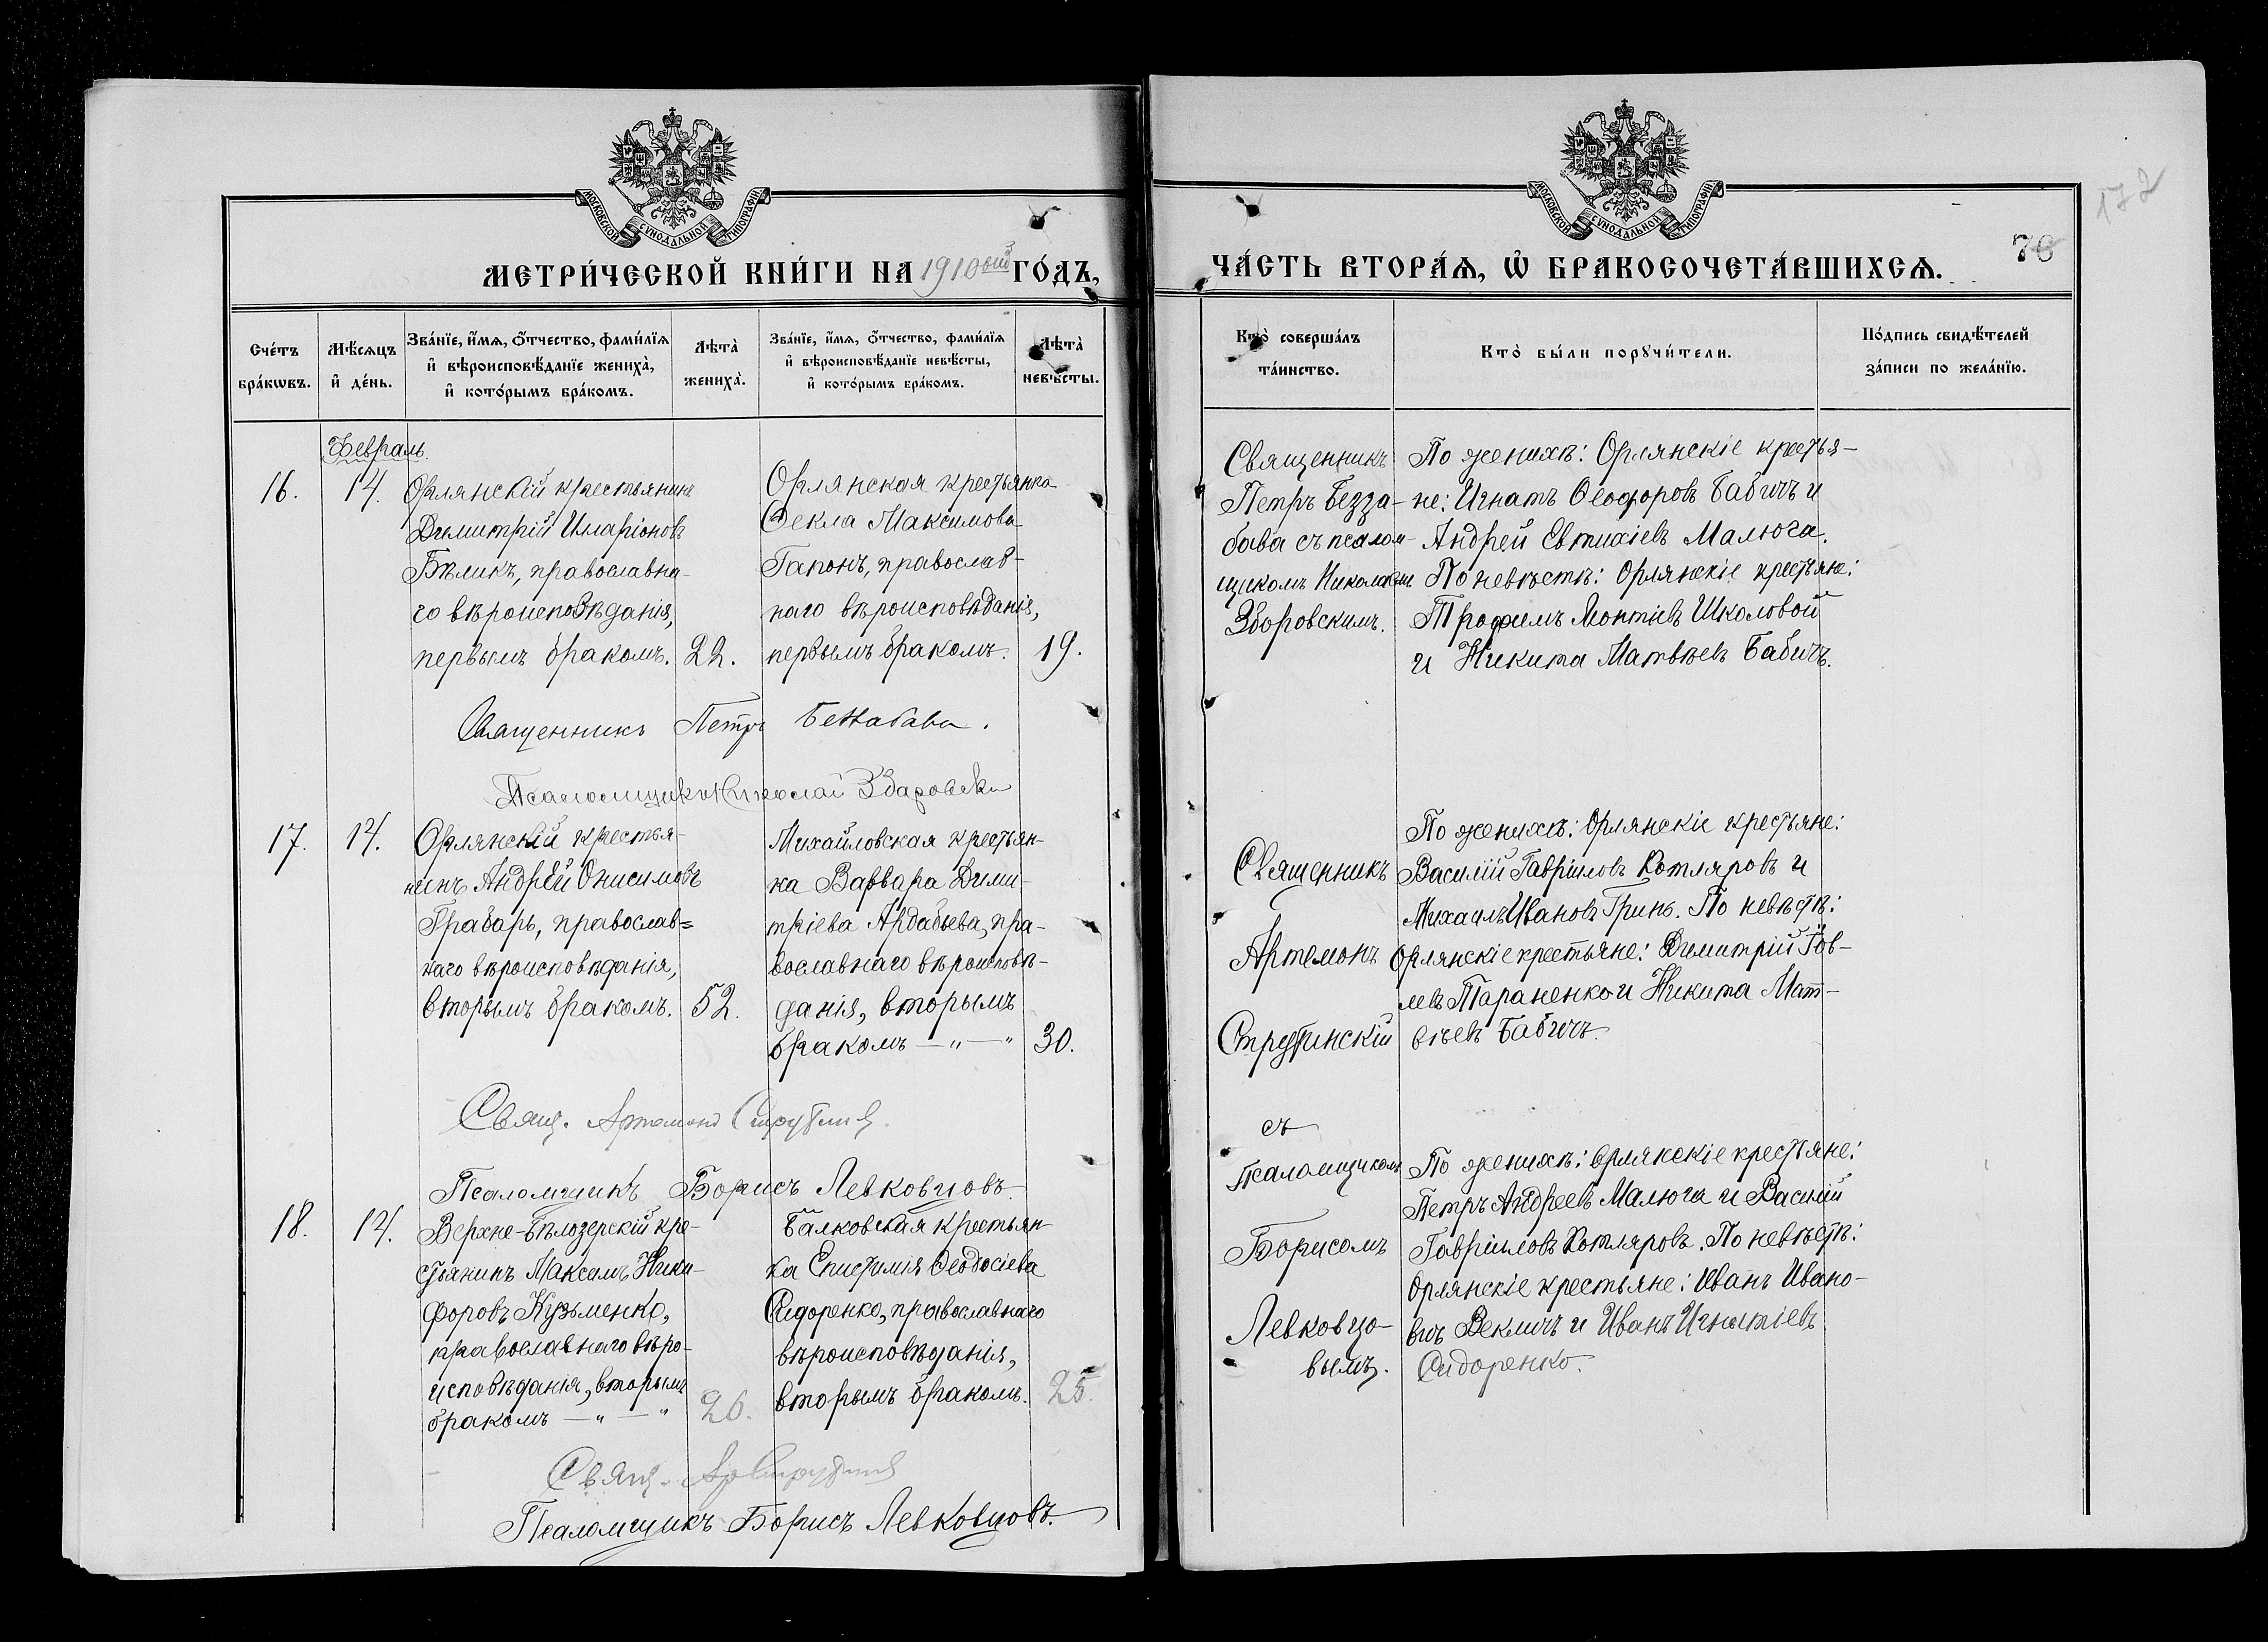 МОСКОВСКОЙ СѴНОДАЛЬНОЙ ТИПОГРАФІИ
МЕТРИ́ЧЕСКОЙ КНИ́ГИ НА 1910ый ГО́ДЪ,
Сче́тъ бра́кѡвъ.
Мѣ́сяцъ и҆ де́нь.
Зва́нїе, и҆́мѧ, ѻ҆́тчество, фами́лїѧ
и҆ вѣроисповѣ́данїе жениха̀,
и҆ кото́рымъ бра́комъ.
Лѣта̀ жениха̀.
Зва́нїе, и҆́мѧ, ѻ҆́тчество, фами́лїѧ
и҆ вѣроисповѣ́данїе невѣ́сты,
и҆ кото́рымъ бра́комъ.
Лѣта̀ невѣ́сты.
Февраль.
16.
14.
Орлянскій крестьянинъ
Димитрій Иларіоновъ
Бѣликъ, православна-
го вѣроисповѣданія,
первымъ бракомъ.
22.
Орлянская крестьянка
Ѳекла Максимова
Гапонъ, православ-
наго вѣроисповѣданія,
первымъ бракомъ.
19.
Священникъ Петръ Беззабава.
Псаломщикъ Николай Збаровски
17.
14.
Орлянскій крестья-
нинъ Андрей Онисимовъ
Грабарь, православ=
наго вѣроисповѣданія,
вторымъ бракомъ.
52.
Михайловская крестьян-
ка Варвара Дими-
тріева Ардабьева, пра-
вославнаго вѣроисповѣ-
данія, вторымъ
бракомъ —„—"
30.
Свящ. Артемонъ Струтинскій
Псаломщикъ Борисъ Левковцовъ.
18.
14.
Верхне-Бѣлозерскій кре-
стьянинъ Максимъ Ники-
форовъ Кузьменко,
православнаго вѣро-
исповѣданія, вторымъ
бракомъ —„—"
26.
Балковская крестьян-
ка Епистимія Ѳеодосіева
Сидоренко, православнаго
вѣроисповѣданія,
вторымъ бракомъ.
25.
Свящ. Ар Струтинскій
Псаломщикъ Борисъ Левковцовъ.
МОСКОВСКОЙ СѴНОДАЛЬНОЙ ТИПОГРАФІИ
172
ЧА́СТЬ ВТОРА́Ѧ, Ѽ БРАКОСОЧЕТА́ВШИХСѦ.
70
Кто̀ соверша́лъ
та́инство.
Кто̀ бы́ли порꙋчи́тели.
По́дпись свидѣ́телей
за́писи по жела́нїю.
Священникъ
Петръ Безза-
бава съ псалом-
щикомъ Николаемъ
Зборовскимъ.
По женихѣ: Орлянскіе крестья-
не: Игнатъ Ѳеодоровъ Бабичъ и
Андрей Евтихіевъ Малюга.
По невѣстѣ: Орлянскіе крестьяне:
Трофимъ Леонтіевъ Школовой
и Никита Матвѣевъ Бабичъ.
Священникъ
Артемонъ
Струтинскій
съ
псаломщикомъ
Борисомъ
Левковцо-
вымъ.
По женихѣ: Орлянскіе крестьяне:
Василій Гавріиловъ Котляровъ и
Михаилъ Ивановъ Гринь. По невѣстѣ:
Орлянскіе крестьяне: Димитрій Іов-
левъ Тараненко и Никита Мат-
віевъ Бабичъ.
По женихѣ: Орлянскіе крестьяне:
Петръ Андреевъ Малюга и Василій
Гавріиловъ Котляровъ. По невѣстѣ:
Орлянскіе крестьяне: Иванъ Ивано-
въ Векличъ и Иванъ Игнатіевъ
Сидоренко.